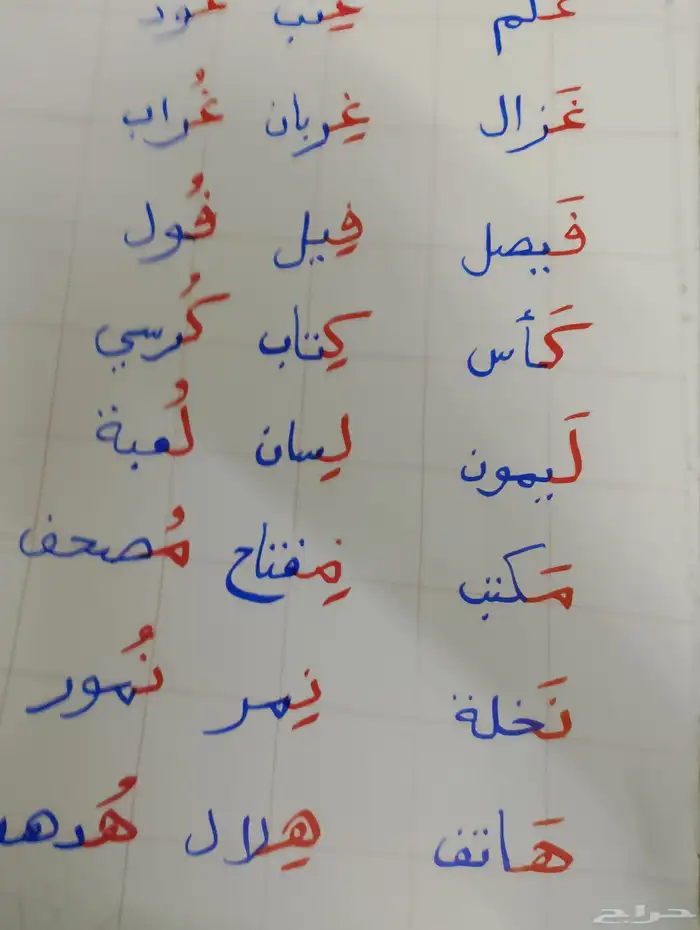 عَلم عِنب عُود
غَزال غِربان غُراب
فَيصل فِيل فُول
كَأس كِتاب كُرسي
لَيمون لِسان لُعبة
مَكتب مِفتاح مُصحف
نَخلة نِمر نُمور
هَاتف هِلال هُدهد
حراج